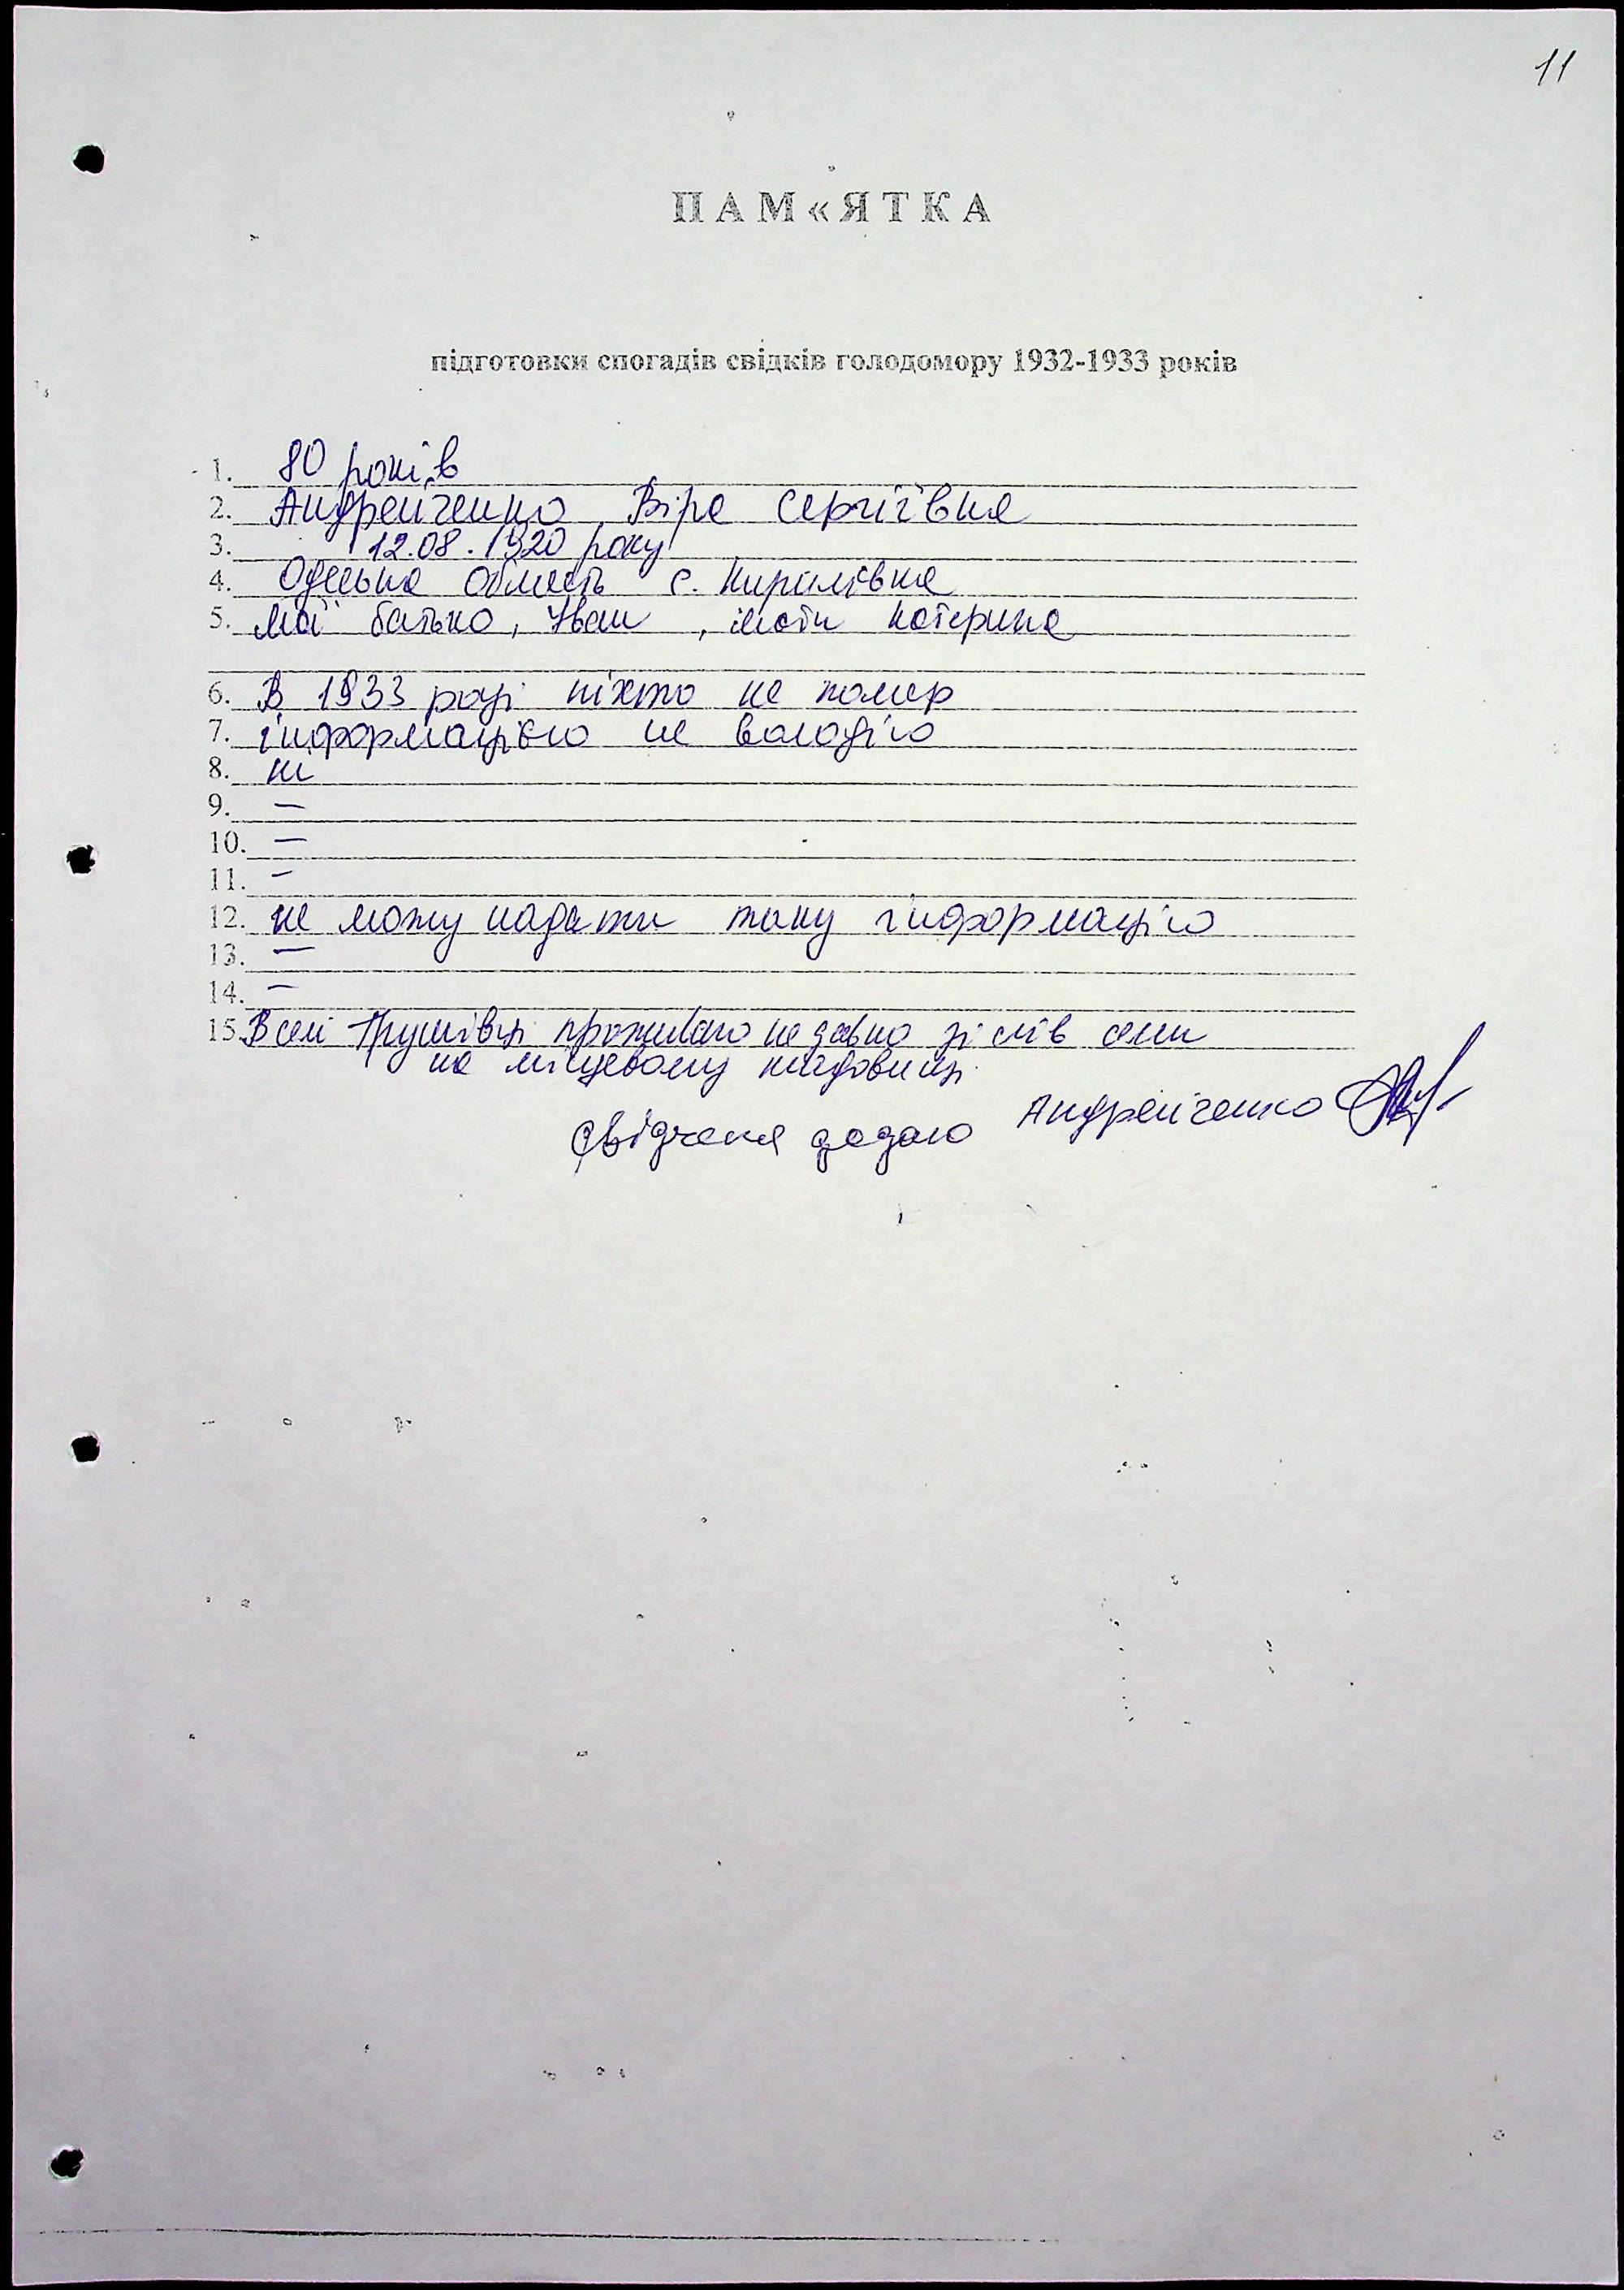 11
ПАМ«ЯТКА
підготовки спогадів свідків голодомору 1932-1933 років
1. 80 років
2. Андрейченко Віра Сергіївна
3. 12.08.1920 року
4. Одеська область с. Кирилівка
5. Мої батько, Іван, мати Катерина
6. В 1933 році ніхто не помер
7. інформацією не володію
8. ні
9. —
10. —
11. —
12. не можу надати таку інформацію
13. —
14. —
15. В селі Трушівці проживаю не давно зі слів
на місцевому кладовищі.
Свідчення додаю Андрейченко